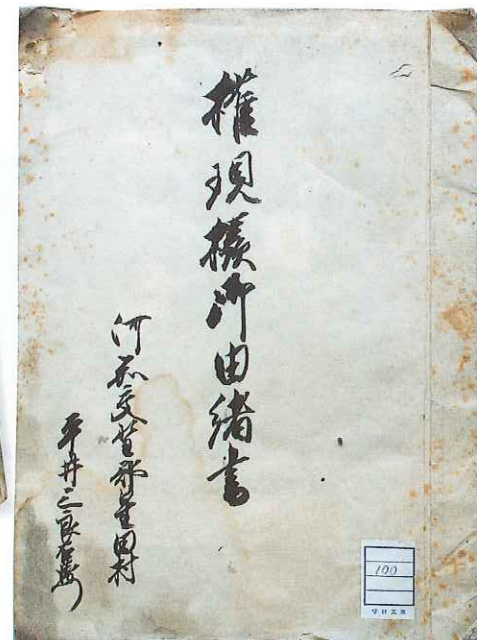 権現様御由緒書
河州交野郡星田村
平井三良右衛門
100